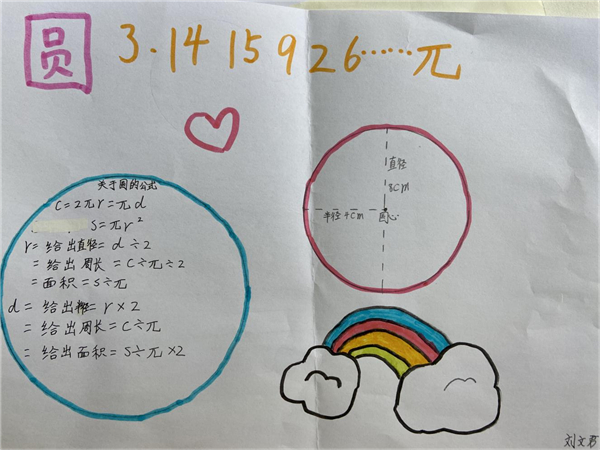 圆 3.1415926……兀
关于圆的公式
C=2兀r=兀d
S=兀r²
r=给出直径=d÷2
=给出周长=C÷兀÷2
=面积=S÷兀
d=给出=r×2
=给出周长=C÷兀
=给出面积=S÷兀×2
直径
8cm
半径4cm 圆心
刘文君